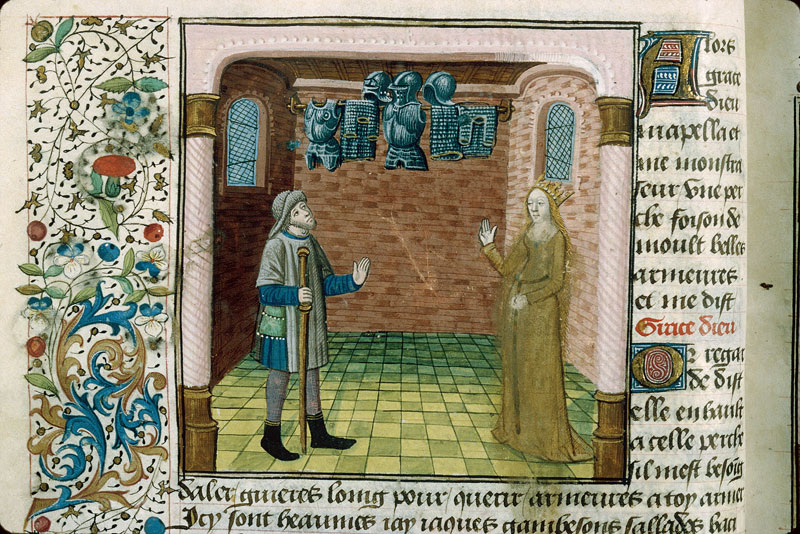 Alors
grace
dieu
mapella et
me monstra
seur vne per
che foison de
moult belles
armeures
et me dist
Grace dieu
Or regar
de dist
elle en hault
a celle perche
sil mest besoig
daler guieres loing pour querir armeures a toy armer
Icy sont heaumes iay iaques gambesons sallades haci